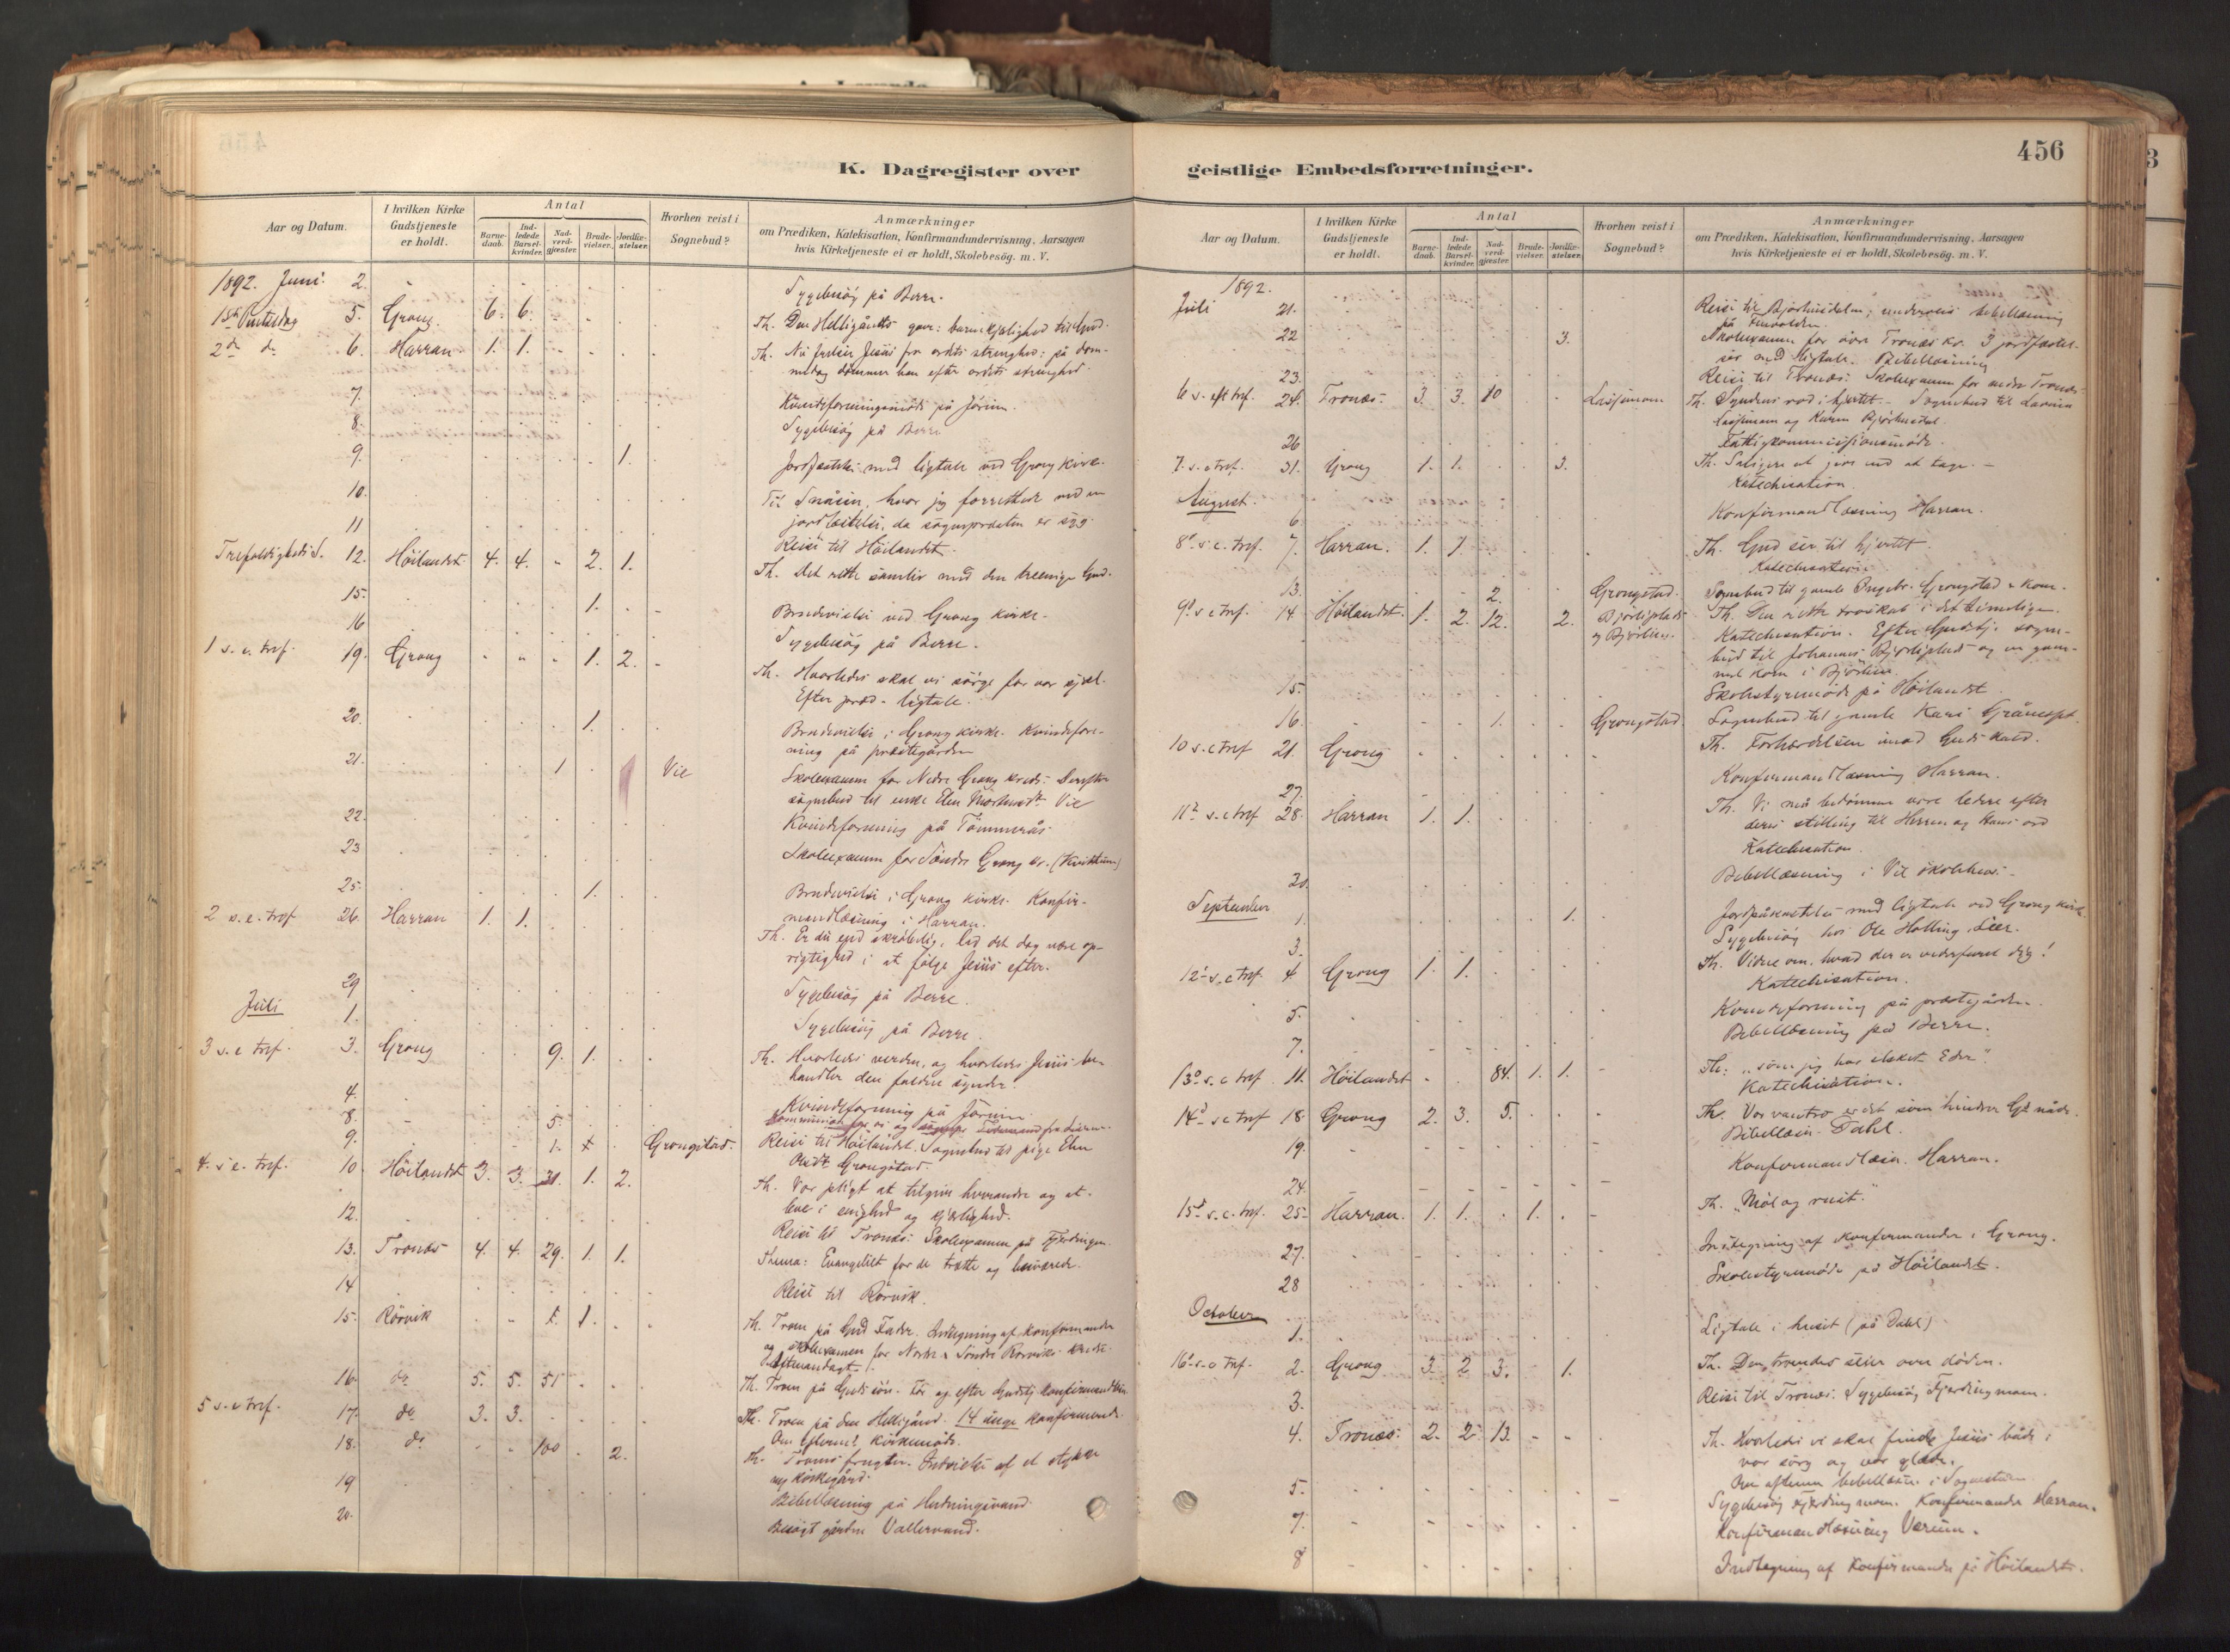 456
K. Dagregister over
geistlige Embedsforretninger.
Aar og Datum.
I hvilken Kirke Gudstjeneste er holdt.
Antal
Barne-daab.
Ind-ledede Barsel-kvinder.
Nad-verd-gjæster.
Brude-vielser.
Jordfæ-stelser.
Hvorhen reist i Sognebud?
Anmærkninger
om Prædiken, Katekisation, Konfirmandundervisning, Aarsagen
hvis Kirketjeneste ei er holdt, Skolebesög. m. V.
1892. Juni 2. Sygebesög på Berre.
5. Grong. 6. 6. Th. Den Helligånds gave: barnekjærlighed til Gud.
2den do 6. Harran 1. 1. Th. Nu frelser Jesus fra ordets strenghed: på dom-
medag dömmer han efter ordets strenghed.
7. Kvindeforeningsmöde på Jörum.
8. Sygebesög på Berre
9. 1. Jordfæstelse med ligtale ved Grong kirke.
10. Til Snåsen, hvor jeg forrettede ved en
jordfæstelse, da sognepræsten er syg.
11 Reise til Höilandet.
Trefoldigheds S. 12. Höilandet 4. 4. 2. 1. Th. Det rette samliv med den treenige Gud.
15. 1. Brudevielse ved Grong kirke.
16 Sygebesög på Berre.
1 s. e. tref. 19. Grong 1. 2. Th. Hvorledes skal vi sörge for vor sjæl.
Efter præd. ligtale.
20. 1. Brudevielse i Grong kirke. Kvindefore-
ning på præstegården
21. 1 Vie Skoleexamen for Nedre Grong kreds. Derefter
sognebud til enke Elen Vie
22. Kvindeforening på Tömmerås
23 Skoleexamen for Söndre Grong kr.
25. 1. Brudevielse i Grong kirke. Konfir-
mandlæsning i Harran.
2 s. e. tref 26. Harran 1. 1. Th. Er du end skröbelig, lad det dog være op-
rigtighed i at fölge Jesus efter.
29 Sygebesög på Berre.
Juli 1. Sygebesög på Berre.
3 s. e tref. 3. Grong 9. 1. Th. Hvorledes verden, og hvorledes Jesus be-
handler den faldne synder.
4. Kvindeforening på Jörum.
8. 5.
9. 1. Grongstad. Reise til Höilandet. Sognebud til pige Elen
Grongstad.
4. s e. tref. 10. Höilandet 3. 3. 31. 1. 2. Th. Vor pligt at tilgive hverandre og at
leve i enighed og kjærlighed.
12. Reise til Tronæs. Skoleexamen på Fjerdingen.
13. Tronæs 4. 4. 29. 1. 1. Thema: Evangeliet for de trætte og besværede.
14 Reise til Rörvik.
15. Rörvik 1. Th. Troen på Gud Fader. Indtegning af konfirmander
og skoleexamen for Nordre & Söndre Rörviks kreds.
16. do 5. 5. 51 Th. Troen på Guds sön. För og efter Gudstj. konfirmandlæsn.
5 s. e tref. 17. do 3. 3. Th. Troen på den Helligånd. 14 unge konfirmeret.
Om efterm. kirkemöde.
18. do 100 2. Th. Troens frugter. Indvielse af et stykke
ny kirkegård.
19 Bibellæsning på Hudningsvand.
20. Besögt gården Vallervand.
Aar og Datum.
I hvilken Kirke Gudstjeneste er holdt.
Antal
Barne-daab.
Ind-ledede Barsel-kvinder.
Nad-verd-gjæster.
Brude-vielser.
Jordfæ-stelser.
Hvorhen reist i Sognebud?
Anmærkninger
om Prædiken, Katekisation, Konfirmandundervisning, Aarsagen
hvis Kirketjeneste ei er holdt, Skolebesög. m. V.
1892.
Juli 21. Reise til Björhusdalen; underveis bibellæsning
på
22 3. Skoleexamen for övre Tronæs kr. 3 jordfæstel-
ser med ligtale. Bibellæsning
23. Reise til Tronæs. Skoleexamen for nedre Tronæs.
6 s. eft tref. 24. Tronæs. 3. 3. 10 Lassemoen Th. Syndens rod i hjertet. Sognebud til
Lassemoen og Karen Björhusdal.
26 Fattigkommissionsmöde.
7. s. e tref. 31. Grong 1. 1. 3. Th. Saligere at give end at tage.
Katechisation.
August.
6. Konfirmandlæsning Harran.
8de s. e. tref. 7. Harran. 1. 1. Th. Gud ser til hjertet.
Katechisation.
13. 2. Grongstad. Sognebud til gamle Grongstad & kone.
9de s e tref. 14. Höilandet. 1. 2. 12. 2. Th. Den rette troskab i det timelige.
Katechisation. Efter Gudstj. sogne-
bud til Johannes og en gam-
mel kone i Björlien.
15. Skolestyremöde på Höilandet.
16. 1. Grongstad. Sognebud til gamle Kari
10 s. e tref 21. Grong Th. Forhærdelsen imod Guds kald.
27. Konfirmandlæsning Harran.
11te s. e tref 28. Harran 1. 1. Th. Vi må bedömme vore ledere efter
deres stilling til Herren og Hans ord
Katechisation.
30. Bibellæsning i Vie skolehus.
September
1. 1. Jordpåkastelse med ligtale ved Grong kirke.
3. Sygebesög hos Ole Holling, Leer.
12te s. e tref. 4 Grong 1. 1. Th. Vidne om, hvad der er vederfaret dig!
Katechisation.
5. Kvindeforening på præstegården.
7. Bibellæsning på Berre.
13de s. e tref. 11. Höilandet 84. 1. 1. Th. „som jeg har elsket Eder".
Katechisation.
14de s e tref 18 Grong 2. 3. 5. Th. Vor vantro er det som hindrer Gs nåde.
Bibellæsn. Fahl.
19. Konfirmandlæsn. Harran.
24.
15de s. e. tref. 25. Harran. 1. 1. 1. Th. „Möl og rust."
27. Indtegning af konfirmander i Grong.
28 Skolestyremöde på Höilandet.
October
1. Ligtale i huset (på Dahl)
16de s. e tref. 2. Grong 3. 2 3. 1. Th. Den troendes seier over döden.
3. Reise til Tronæs. Sygebesög Fjerdingmoen.
4. Tronæs. 2. 2. 13. Th. Hvorledes vi skal finde Jesus både i
vor sorg og vor glæde.
Om efterm. bibellæsn. i
5. Sygebesög Fjerdingmoen. Konfirmander Harran.
7. Konfirmandlæsning Værum.
8 Indtegning af konfirmander på Höilandet.